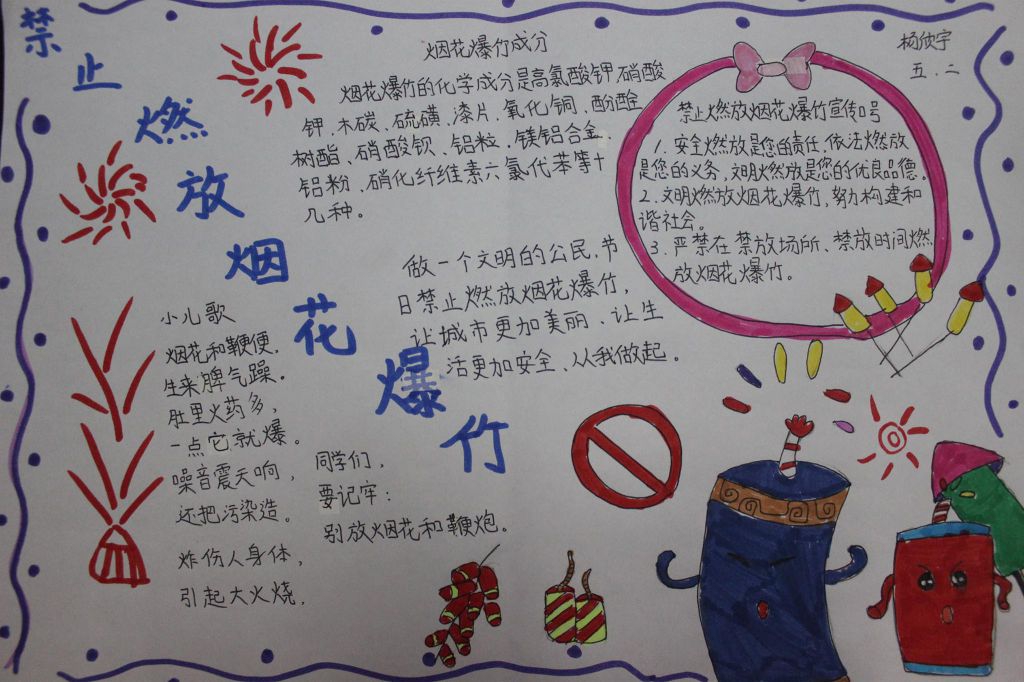 禁止燃放烟花爆竹
杨欣宇
五.二
烟花爆竹成分
烟花爆竹的化学成分是高氯酸钾、硝酸
钾、木碳、硫磺、漆片、氧化铜、酚醛
树酯、硝酸钡、铝粒、镁铝合金
铝粉、硝化纤维素六氯代苯等十
几种。
禁止燃放烟花爆竹宣传口号
1.安全燃放是您的责任,依法燃放
是您的义务,文明燃放是您的优良品德。
2.文明燃放烟花爆竹,努力构建和
谐社会。
3.严禁在禁放场所、禁放时间燃
放烟花爆竹。
做一个文明的公民,节
日禁止燃放烟花爆竹,
让城市更加美丽、让生
活更加安全、从我做起。
小儿歌
烟花和鞭便,
生来脾气躁。
肚里火药多,
一点它就爆。
噪音震天响,
还把污染造。
炸伤人身体,
引起大火烧,
同学们,
要记牢:
别放烟花和鞭炮。